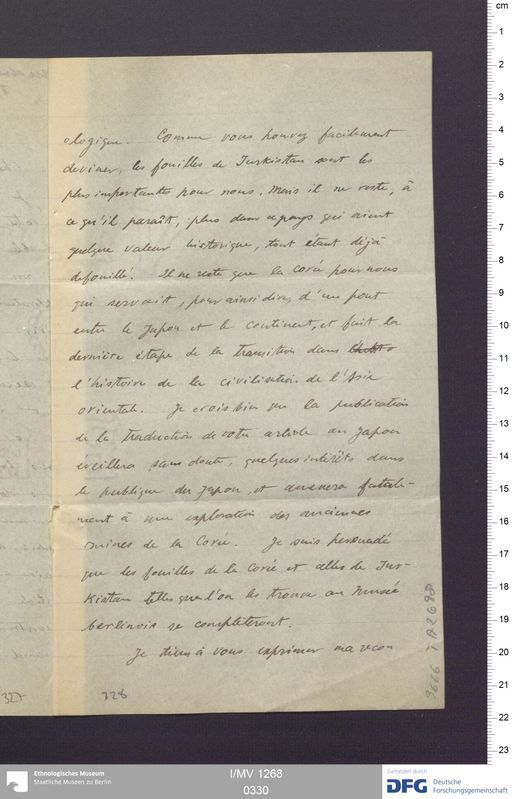 ologique. Comme vous pouvez facilement
deviner, les fouilles de Turkistan sont les
plus importantes pour nous, mais il ne reste, à
ce qu'il paraît, plus dans ce pays qui aient
quelque valeur historique, tout étant déjà
defouillé. Il ne reste que la corée pour nous
qui servait, pour ainsi dire, d'un pont
entre le Japon et le continent, et fait la
dernière étape de la transition dans
l'histoire de la civilisation de l'Asie
orientale. Je crois bien que la publication
de la traduction de votre article au Japon
éveillera sans doute, quelques intérêts dans
le publique du Japon, et amenera fatale-
ment à une exploration des anciennes
ruines de la Corée. Je suis persuadé
que les fouilles de la Corée et celles de Tur-
kistan telles que l'on les trouve au Musée
berlinois se completeront.
Je tiens à vous exprimer ma recon
327
328
cm
1
2
3
4
5
6
7
8
9
10
11
12
13
14
15
16
17
18
19
20
21
22
23
Ethnologisches Museum
Staatliche Museen zu Berlin
I/MV 1268
0330
Gefördert durch
DFG Deutsche
Forschungsgemeinschaft